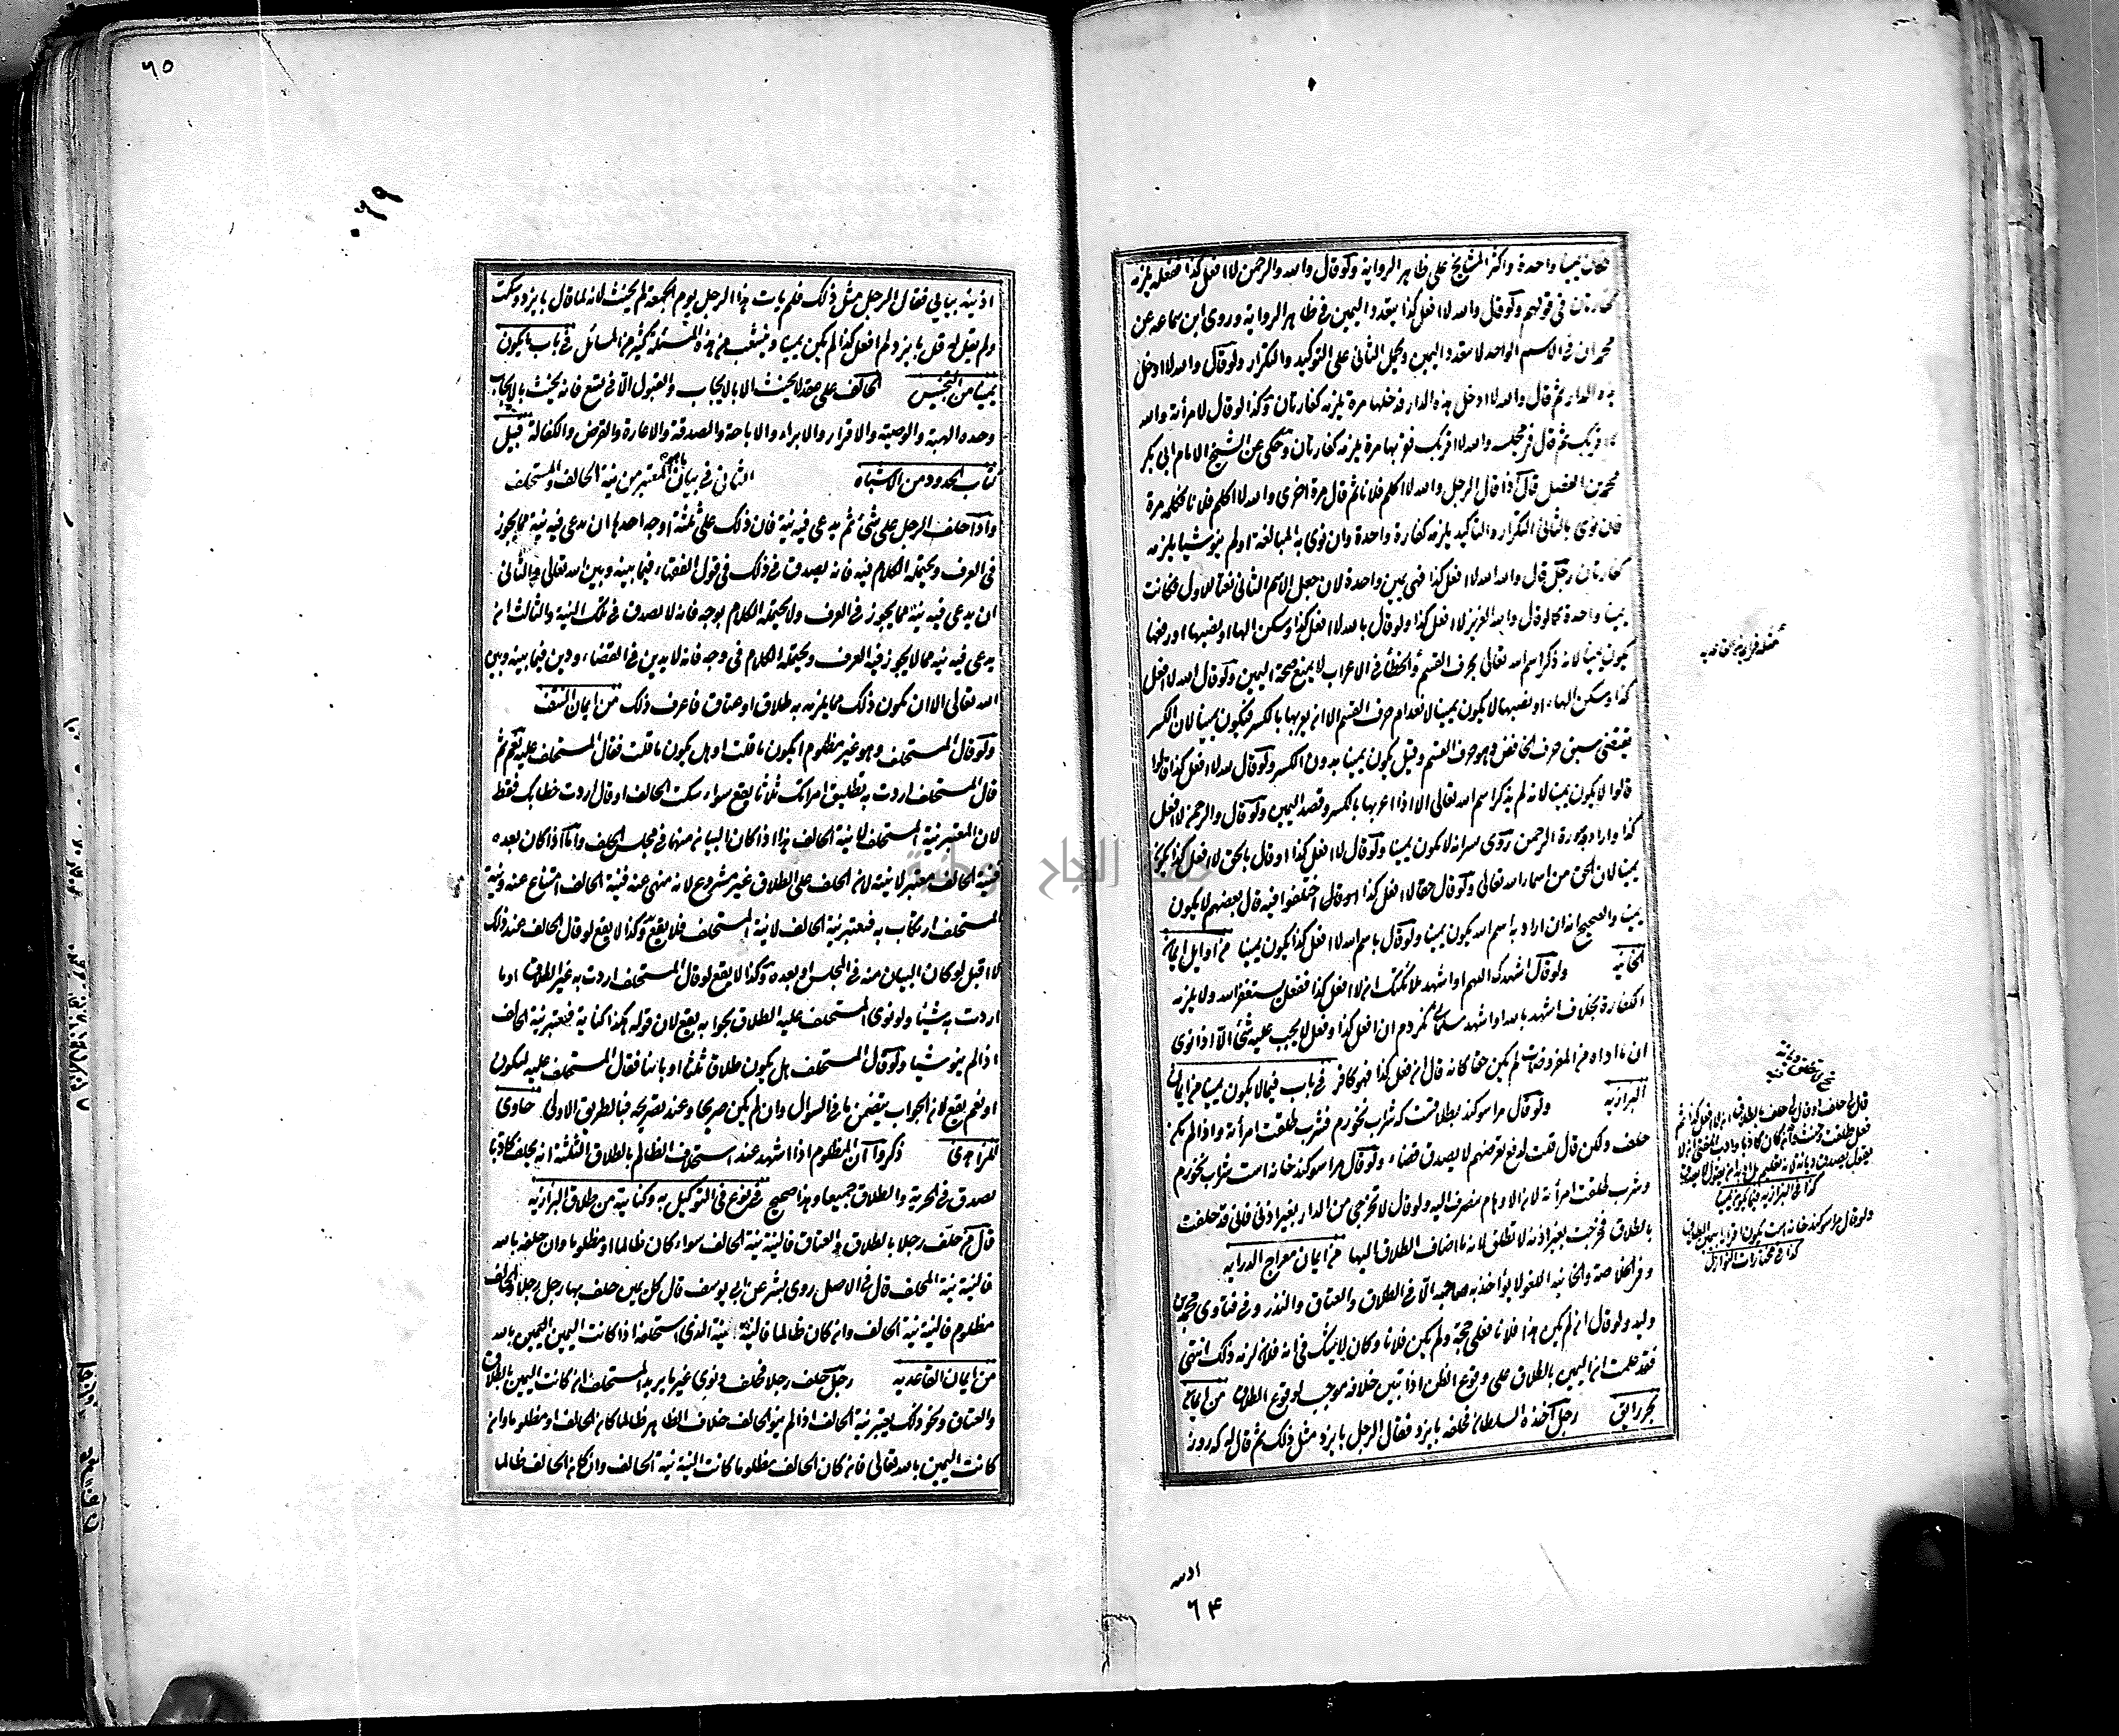 فكان يمينا واحدة واكثر المشايخ على ظاهر الرواية ولو قال والله والرحمن لا افعل كذا ففعله يلزمه
كفارتان في قولهم ولو قال والله لا افعل كذا يتعدد اليمين في ظاهر الرواية وروى ابن سماعه عن
محمد ان في الاسم الواحد لا يتعدد اليمين ويحمل الثاني على التوكيد والتكرار ولو قال والله لا ادخل
هذه الدار ثم قال والله لا ادخل هذه الدار فدخلها مرة يلزمه كفارتان وكذا لو قال لامرأته والله
لا اقربك ثم قال في مجلسه والله لا اقربك فقربها مرة يلزمه كفارتان وحكى عن الشيخ الامام ابى بكر
محمد بن الفضل قال اذا قال الرجل والله لا اكلم فلانا ثم قال مرة اخرى والله لا اكلم فلانا فكلمه مرة
فان نوى بالثانى التكرار والتاكيد يلزمه كفارة واحدة وان نوى به المبالغة او لم ينو شيا يلزمه
كفارتان رجل قال والله الله لا افعل كذا فهى يمين واحدة لان جعل الاسم الثانى نعتا للاول فكانت
يمينا واحدة كما لو قال والله العزيز لا افعل كذا ولو قال بالله لا افعل كذا وسكن الهاء او نصبها او رفعها
يكون يمينا لانه ذكر اسم الله تعالى بحرف القسم والخطأ في الاعراب لا يمنع صحة اليمين ولو قال الله لا افعل
كذا وسكن الهاء او نصبها لا يكون يمينا لانعدام حرف القسم الا ان يعربها بالكسر فيكون يمينا لان الكسر
يقتضى سبق حرف الخافض وهو حرف القسم وقيل يكون يمينا بدون الكسر ولو قال لله لا افعل كذا قالوا
قالوا لا يكون يمينا لانه لم يذكر اسم الله تعالى الا اذا اعربها بالكسر وقصد اليمين ولو قال والرحمن لا افعل
كذا واراد به سورة الرحمن روى بشر انه لا يكون يمينا ولو قال لا افعل كذا او قال بالحق لا افعل كذا يكون
يمينا لان الحق من اسماء الله تعالى ولو قال حقا لا افعل كذا اختلفوا فيه قال بعضهم لا يكون
يمينا والصحيح انه ان اراد به اسم الله يكون يمينا ولو قال باسم الله لا افعل كذا يكون يمينا من اوايل ايمان
الخانيه ولو قال اشهدك اللهم او اشهد ملائكتك ان لا افعل كذا ففعل يستغفر الله ولا يلزمه
الكفارة بخلاف اشهد بالله او اشهد مسلمانى نكردم ان افعل كذا وفعل لا يجب عليه شئ الا اذا نوى
ان ما اداه من المفروضات لم يكن حقا كانه قال ان فعل كذا فهو كافر في باب فيما لا يكون يمينا من ايمان
البزازيه ولو قال مرا سوكند بطلاقست كه شراب نخورم فشرب طلقت امرأته واذا لم يكن
حلف ولكن قال قلت لدفع تعرضهم لا يصدق قضاء ولو قال مرا سوكند خانه است شراب نخورم
وشرب طلقت امرأته لان الاوهام منصرف اليه ولو قال لا تخرجى من الدار بغير اذنى فانى قد حلفت
بالطلاق فخرجت بغير اذنه لا تطلق لانه ما اضاف الطلاق اليها من ايمان معراج الدرايه
وفي الخلاصة والخانيه اللغو لا يؤاخذ به صاحبه الا في الطلاق والعتاق والنذر وفي فتاوى محمد بن
وليد ولو قال ان لم يكن هذا فلانا فعلى حجة ولم يكن فلانا وكان لا يشك في انه فلان لزمه ذلك انتهى
فقد علمت ان اليمين بالطلاق على وقوع الظن اذا تبين خلافه موجب لوقوع الطلاق من ايمان
بحر رايق رجل اخذه السلطان فحلفه بايزد فقال الرجل بايزد مثل ذلك ثم قال له كه روز
نوع في تخصيص دعواه نيه
قال لى حلف او قال لى حلف بالطلاق ان لا افعل كذا ثم
فعل طلقت وحنث وان كان كاذبا
كذا في البزازيه فيما يكون يمينا
ولو قال مرا سوكند خانه است يكون اقرارا بيمين الطلاق
كذا في مختارات النوازل
اذينه
٦٤
٦٥
٠٦٩
اذينه بيايى فقال الرجل مثل ذلك فلم يات هذا الرجل يوم الجمعه لم يحنث لانه لما قال بايزد وسكت
ولم يقل له قل بايزد لم افعل كذا لم يكن يمينا وينشعب من هذه المسئلة كثير من المسائل في باب ما يكون
يمينا من التجنيس الحالف على عقد لا يحنث الا بالايجاب والقبول الا في تسع فانه يحنث بالايجاب
وحده الهبة والوصية والاقرار والابراء والاباحة والصدقة والاعارة والقرض والكفالة قبيل
كتاب الحدود من الاشباه الثانى في بيان ما هو المعتبر من نية الحالف والمستحلف
واذا حلف الرجل على شئ ثم يدعى فيه نية فان ذلك على ثلثة اوجه احدها ان يدعى فيه نية مما يجوز
في العرف ويحتمله الكلام فيه فانه يصدق في ذلك في قول الفقهاء فيما بينه وبين الله تعالى والثانى
ان يدعى فيه نية مما يجوز في العرف ولا يحتمله الكلام بوجه فانه لا يصدق في تلك النية والثالث ان
يدعى فيه نيه مما لا يجوز فيه العرف ويحتمله الكلام في وجه فانه لا يدين في القضاء ودين فيما بينه وبين
الله تعالى الا ان يكون ذلك مما يلزمه به طلاق او عتاق فاعرف ذلك من ايمان النتف
ولو قال المستحلف وهو غير مظلوم ايكون ما قلت او هل يكون ما قلت فقال المستحلف عليه نعم ثم
قال المستحلف اردت به تطليق امراتك ثلاثا يقع سواء سكت الحالف او قال اردت خطابك فقط
لان المعتبر نية المستحلف لا نية الحالف هذا اذا كان البيان منهما في مجلس الحلف واما اذا كان بعده
فنية الحالف معتبر لا نيته لان الحلف على الطلاق غير مشروع لانه منهى عنه فنية الحالف امتناع عنه ونية
المستحلف ارتكاب به فتعتبر نية الحالف لا نية المستحلف فلا يقع وكذا لا يقع لو قال الحالف عند ذلك
لا اقبل لو كان البيان منه في المجلس او بعده وكذا لا يقع لو قال المستحلف اردت به غير الطلاق او ما
اردت به شيئا ولو نوى المستحلف عليه الطلاق بجوابه يقع لان قوله هكذا كناية فتعتبر نية الحالف
اذا لم ينو شيا ولو قال المستحلف هل يكون طلاق ثلثا او باينا فقال المستحلف عليه ليكون
او نعم يقع لان الجواب يتضمن ما في السؤال وان لم يكن صريحا وعند تصريحه فبالطريق الاولى حاوى
الزاهدى ذكروا ان المظلوم اذا اشهد عند استحلاف الظالم بالطلاق الثلثة انه يحلف كاذبا
يصدق في الحرية والطلاق جميعا وهذا صحيح في نوع في التوكيل به وكنايته من طلاق البزازيه
قال من حلف رجلا بالطلاق والعتاق فالنية نية الحالف سواء كان ظالما او مظلوما وان حلفه بالله
فالنية نية المحلف قال في الاصل روى بشر عن ابى يوسف قال كل يمين حلف بها رجل رجلا والحالف
مظلوم فالنية نية الحالف وان كان ظالما فالنية نية الذى استحلفه اذا كانت اليمين اليمين بالله
من ايمان القاعديه رجل حلف رجلا فحلف ونوى غير ما يريد المستحلف ان كانت اليمين بالطلاق
والعتاق ونحو ذلك يعتبر نية الحالف اذا لم ينو الحالف خلاف الظاهر ظالما كان الحالف او مظلوما وان
كانت اليمين بالله تعالى فان كان الحالف مظلوما كانت النية نية الحالف وان كان الحالف ظالما